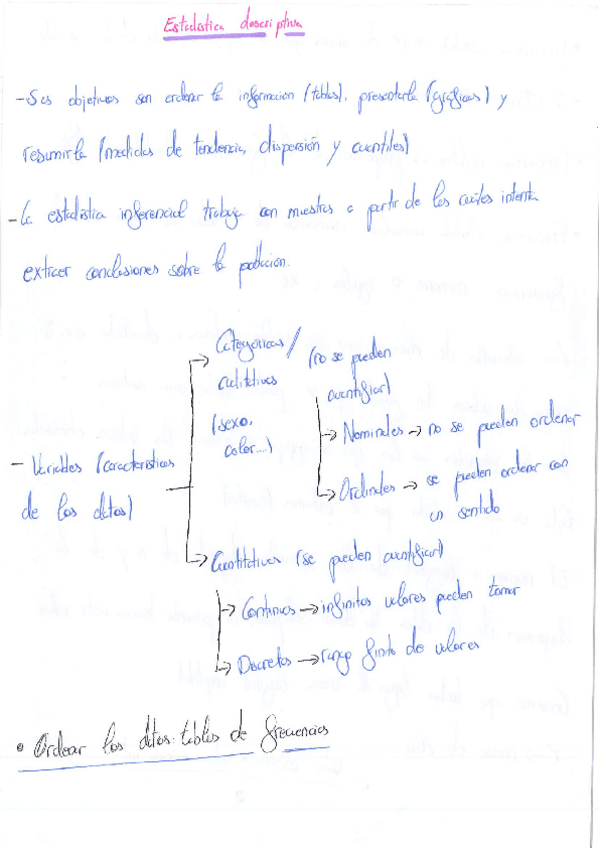 Estadística descriptiva
- Sus objetivos son ordenar la informacion (tablas), presentarla (gráficas) y
resumirla (medidas de tendencia, dispersión y cuantiles)
- La estadística inferencial trabaja con muestras a partir de las cuales intenta
extraer conclusiones sobre la poblacion.
- Variables (características
de los datos)
Categoricas /
cualitativas
(sexo,
color...)
(no se pueden
cuantificar)
→ Nominales → no se pueden ordenar
→ Ordinales → se pueden ordenar con
un sentido
→ Cuantitativas (se pueden cuantificar)
→ Continuas → infinitos valores pueden tomar
→ Discretas → rango finito de valores
• Ordenar los datos: tablas de frecuencias